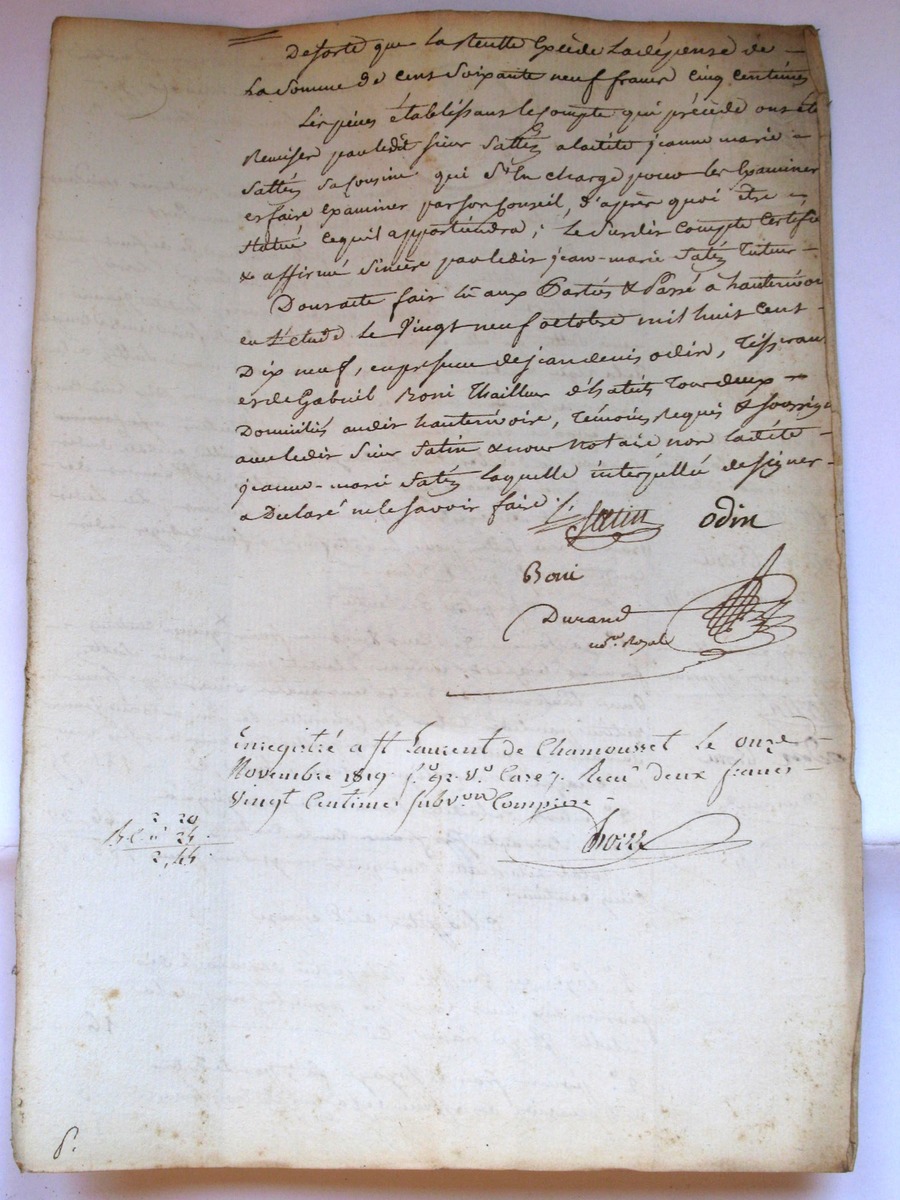 De sorte que la Recette Excède la dépense de -
La Somme de cent soixante neuf francs cinq centimes
Les pièces établissant le compte qui précède ont été
Remises par ledit sieur Satin a ladite jeanne marie -
Satin sa cousine qui s'en charge pour les Examiner
et faire examiner par son Conseil, d'après quoi être -
Statué ce qu'il appartiendra; le Susdit Compte Certifié
& affirmé Sincère par ledit jean-marie Satin Tuteur -
Dont acte fait lu aux Parties & Passé à hauterivoire
en L'étude Le Vingt neuf octobre mil huit cent -
Dix neuf, en présence de jean denis odin, Tisserand
et de Gabriel Boni Thailleur d'habits Tous deux -
Domiciliés audit hauterivoire, témoins Requis & soussignés
avec ledit Sieur Satin & nous Notaire non ladite -
jeanne-marie Satin laquelle interpellée de signer -
a Déclaré ne le savoir faire.
Satin odin
Boni
Durand
nore Royal
Enregistré a St Laurent de Chamousset Le onze
Novembre 1819 fo 92 Vo Case 7. Recu deux francs
Vingt Centimes subvon Comprise -
2 20
24
2,44